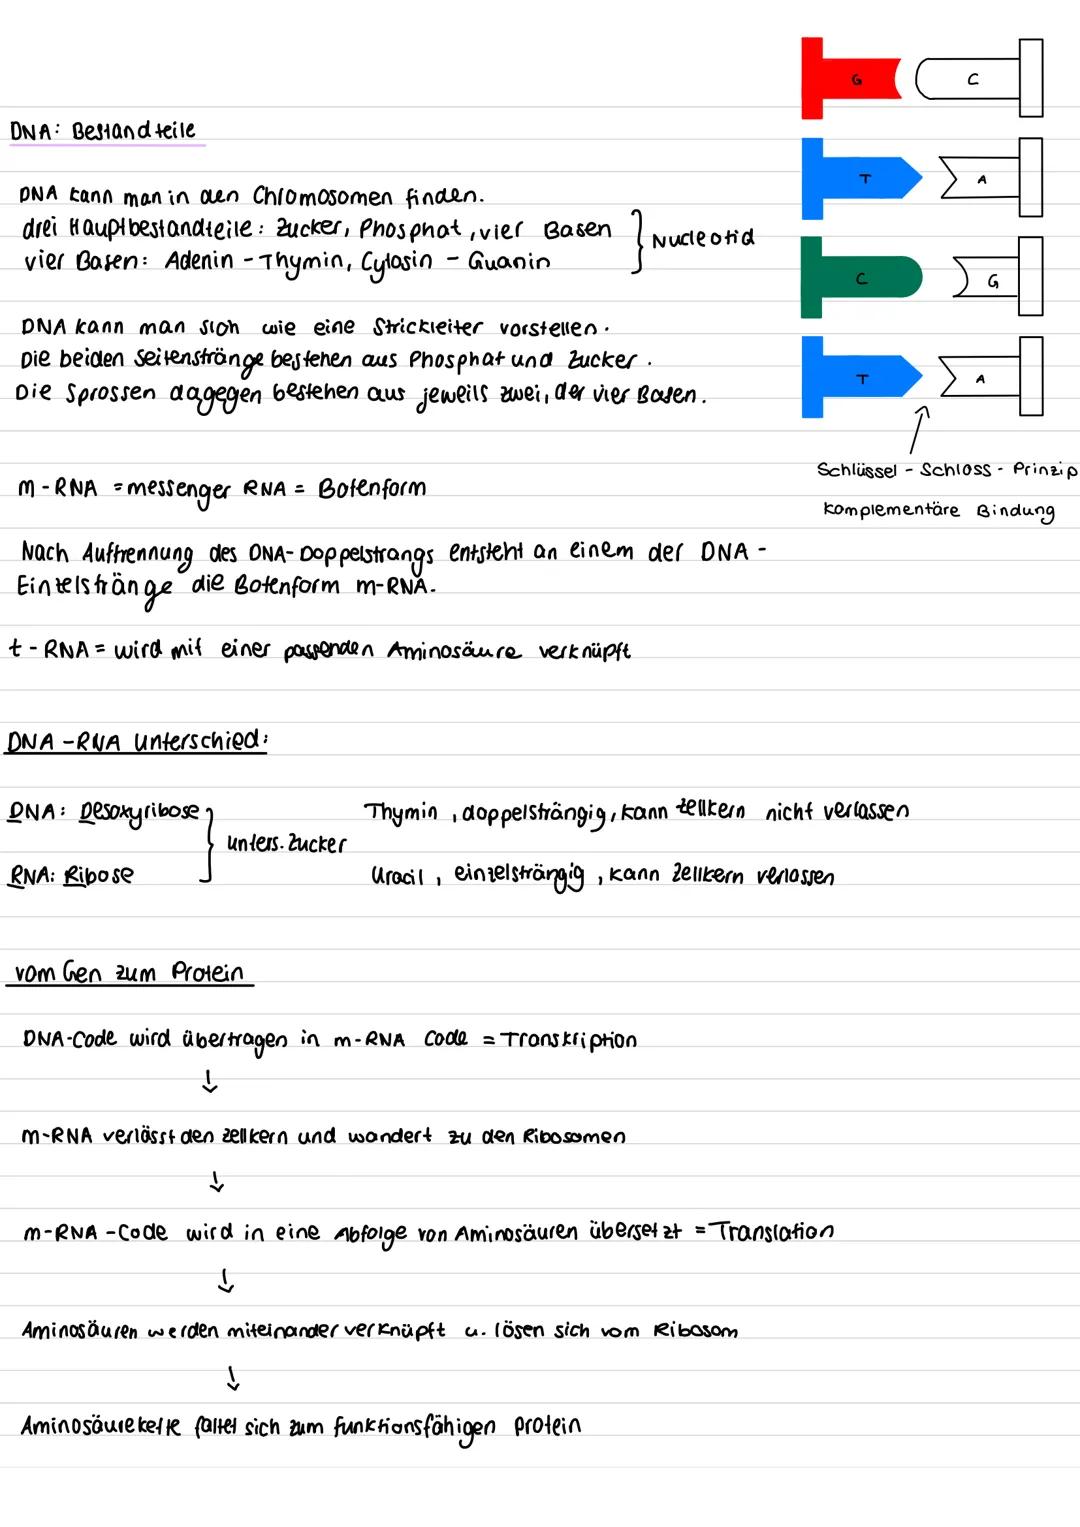 G C
DNA: Bestandteile
T A
DNA kann man in den Chromosomen finden.
drei Hauptbestandteile: Zucker, Phosphat, vier Basen
Nucleotid
vier Basen: Adenin - Thymin, Cytosin - Guanin
C G
DNA kann man sich wie eine Strickleiter vorstellen.
Die beiden Seitenstränge bestehen aus Phosphat und Zucker.
T A
Die Sprossen dagegen bestehen aus jeweils zwei, der vier Basen.
Schlüssel - Schloss - Prinzip
komplementäre Bindung
m-RNA = messenger RNA = Botenform
Nach Auftrennung des DNA-Doppelstrangs entsteht an einem der DNA -
Einzelstränge die Botenform m-RNA.
t - RNA = wird mit einer passenden Aminosäure verknüpft
DNA - RNA Unterschied:
DNA: Desoxyribose Thymin, doppelsträngig, kann Zellkern nicht verlassen
unters. Zucker
RNA: Ribose Uracil, einzelsträngig, kann Zellkern verlassen
vom Gen zum Protein
DNA-Code wird übertragen in m-RNA Code = Transkription
↓
m-RNA verlässt den Zellkern und wandert zu den Ribosomen
↓
m-RNA - Code wird in eine Abfolge von Aminosäuren übersetzt = Translation
↓
Aminosäuren werden miteinander verknüpft u. lösen sich vom Ribosom
↓
Aminosäurekette faltet sich zum funktionsfähigen Protein